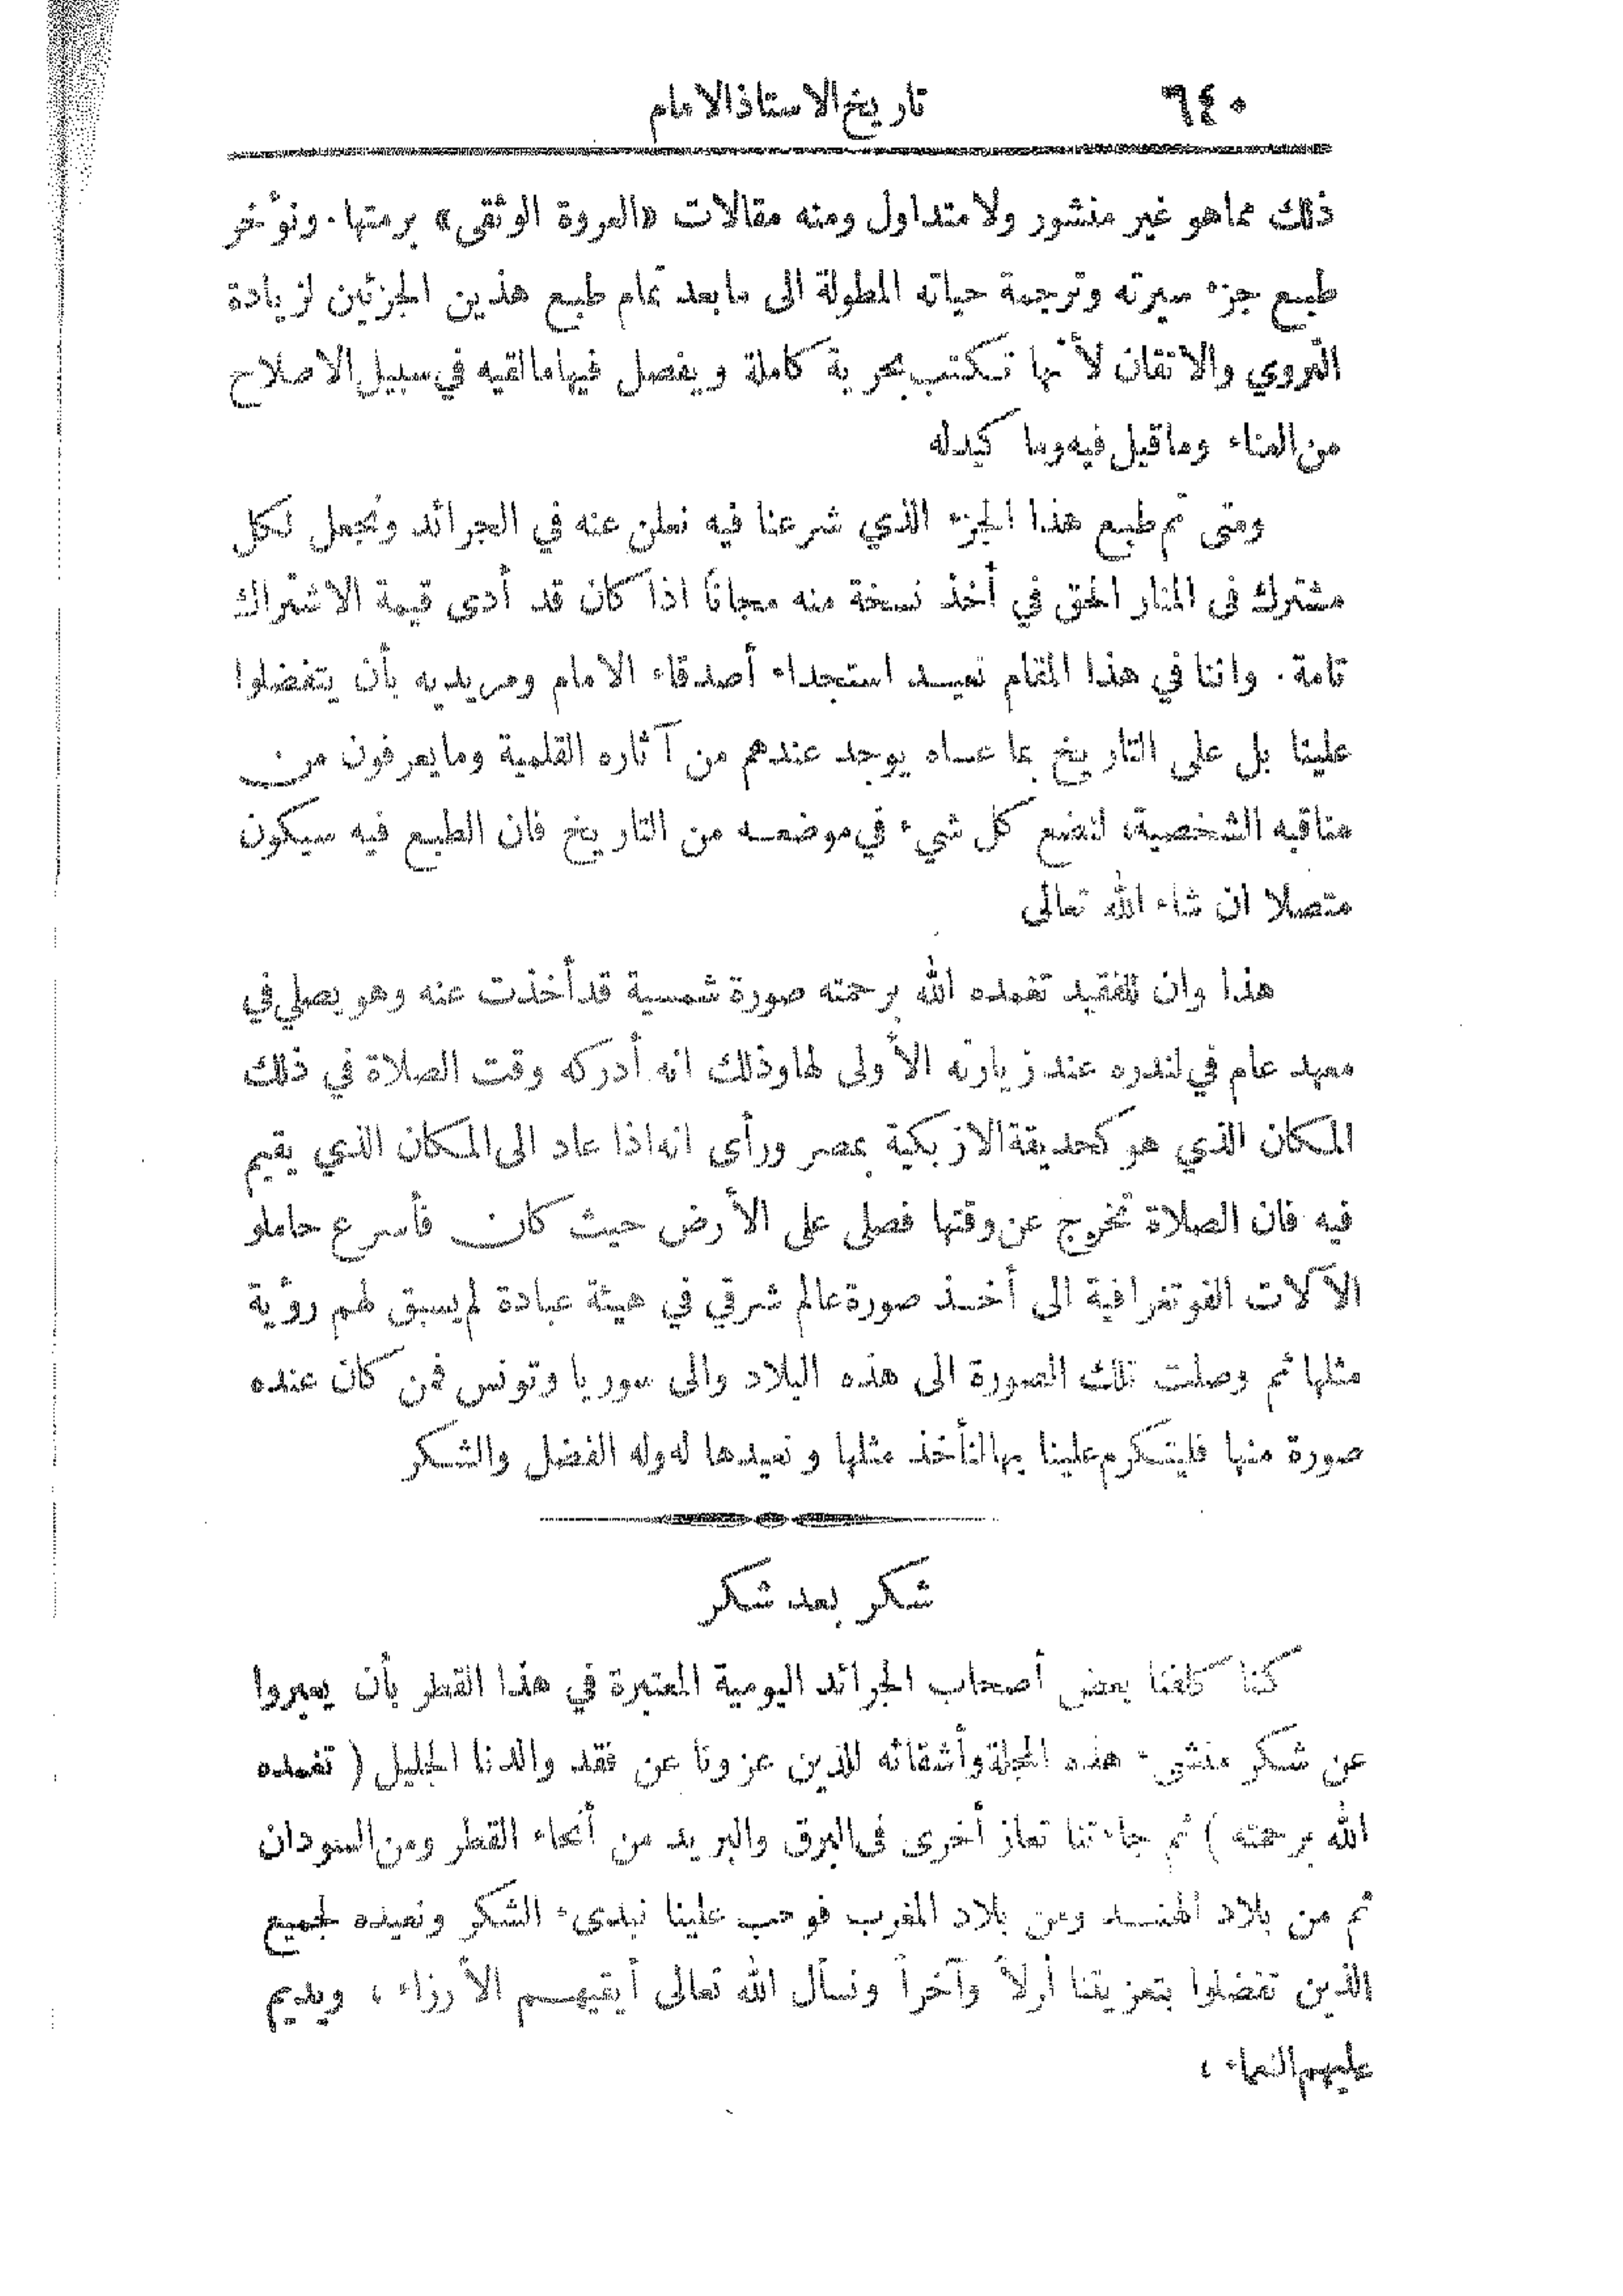 ٦٤٠ تاريخ الاستاذ الامام
ذلك مما هو غير منشور ولا متداول ومنه مقالات «العروة الوثقى» برمتها. ونؤخر
طبع جزء سيرته وترجمة حياته المطولة الى ما بعد تمام طبع هذين الجزئين لزيادة
التروي والاتقان لأنها تكتب بحرية كاملة ويفصل فيها ما لقيه في سبيل الاصلاح
من العناء وما قيل فيه وما كيد له
ومتى تم طبع هذا الجزء الذي شرعنا فيه نعلن عنه في الجرائد ونجعل لكل
مشترك في المنار الحق في أخذ نسخة منه مجانًا اذا كان قد أدى قيمة الاشتراك
تامة. واننا في هذا المقام نعيد استجداء أصدقاء الامام ومريديه بأن يتفضلوا
علينا بل على التاريخ بما عساه يوجد عندهم من آثاره القلمية وما يعرفون من
مناقبه الشخصية، لنضع كل شيء في موضعه من التاريخ فان الطبع فيه سيكون
متصلا ان شاء الله تعالى
هذا وان للفقيد تغمده الله برحمته صورة شمسية قد أخذت عنه وهو يصلي في
معهد عام في لندره عند زيارته الأولى لها وذلك انه أدركه وقت الصلاة في ذلك
المكان الذي هو كحديقة الازبكية بمصر ورأى انه اذا عاد الى المكان الذي يقيم
فيه فان الصلاة تخرج عن وقتها فصلى على الأرض حيث كان فأسرع حاملو
الآلات الفوتغرافية الى أخذ صورة عالم شرقي في هيئة عبادة لم يسبق لهم رؤية
مثلها ثم وصلت تلك الصورة الى هذه البلاد والى سوريا وتونس فمن كان عنده
صورة منها فليتكرم علينا بها لنأخذ مثلها ونعيدها له وله الفضل والشكر
شكر بعد شكر
كنا كلفنا بعض أصحاب الجرائد اليومية المعتبرة في هذا القطر بأن يعبروا
عن شكر منشىء هذه المجلة وأشقائه للذين عزونا عن فقد والدنا الجليل (تغمده
الله برحمته) ثم جاءتنا تعاز أخرى في البرق والبريد من أنحاء القطر ومن السودان
ثم من بلاد الهند ومن بلاد المغرب فوجب علينا نبدىء الشكر ونعيده لجميع
الذين تفضلوا بتعزيتنا أولاً وآخراً ونسأل الله تعالى أن يقيهم الأرزاء، ويديم
عليهم النعماء،